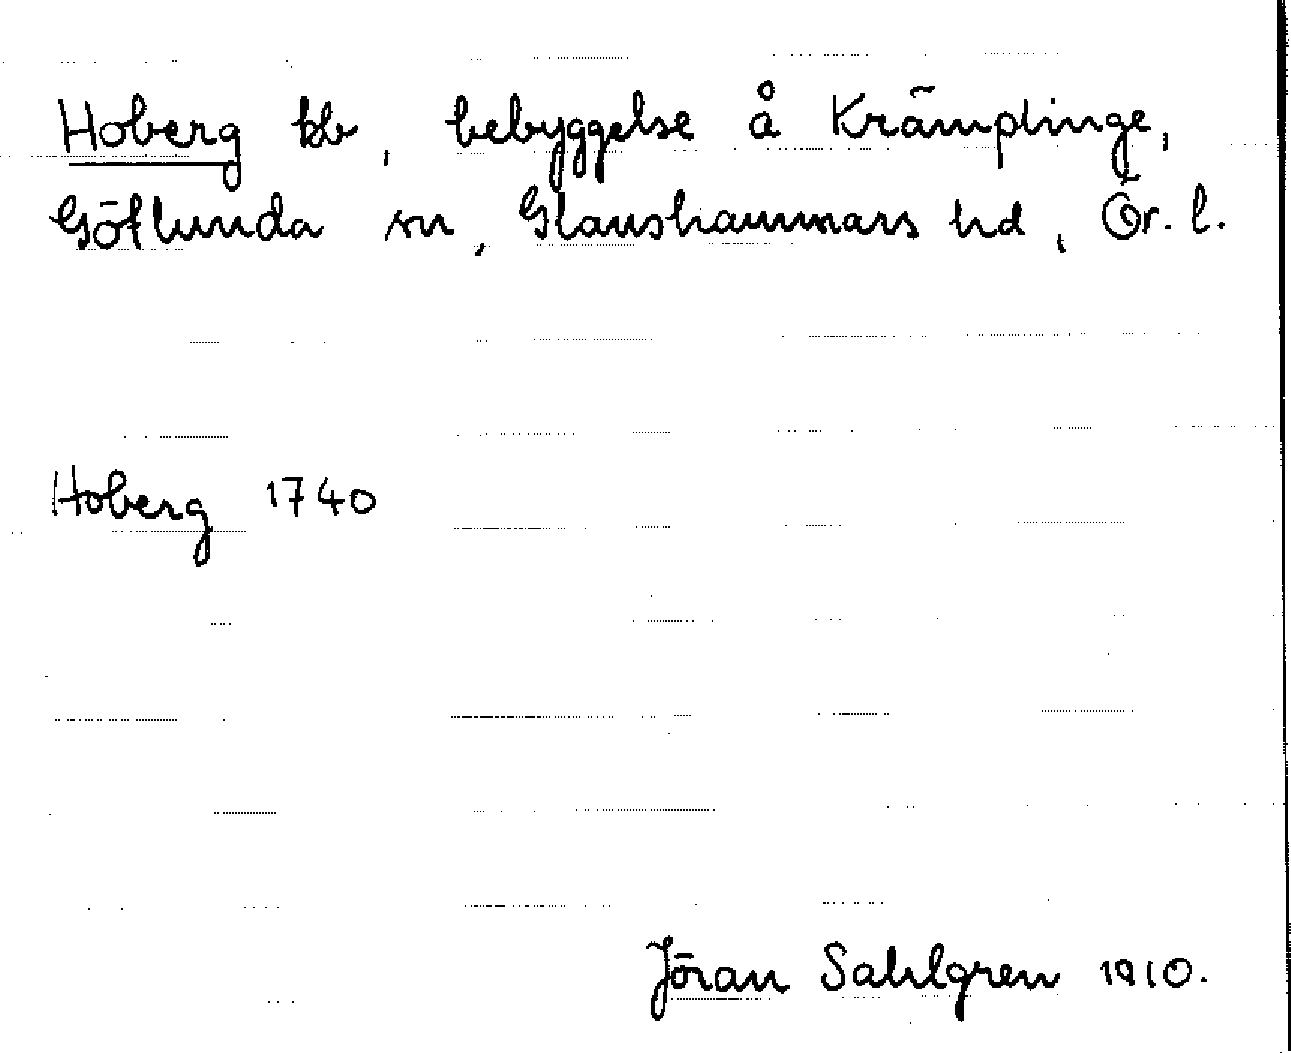 Hoberg bb, bebyggelse å Krämplinge,
Götlunda sn, Glanshammars hd, Ör. l.
Hoberg 1740
Jöran Sahlgren 1910.